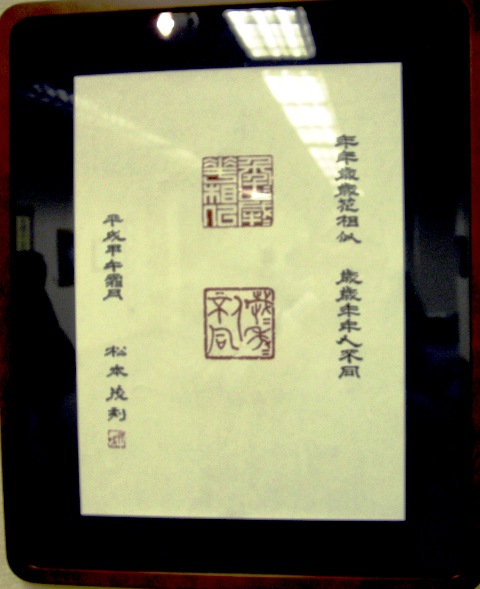 年年歳歳花相似 歳歳年年人不同
平成甲午霜月 松本茂刻